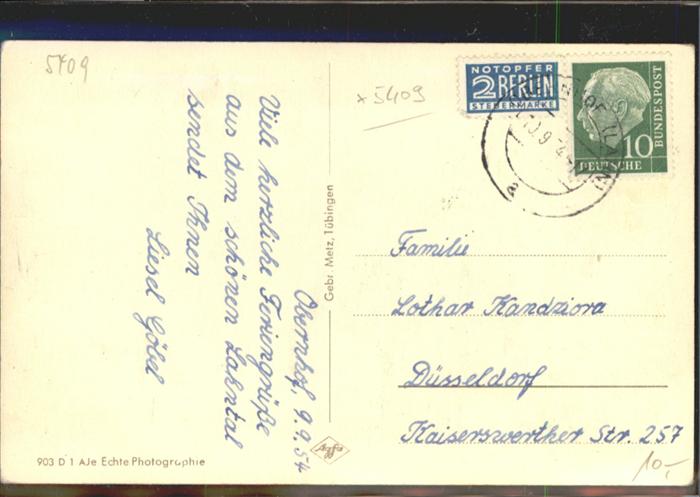 5409
x 5409
NOTOPFER
2 BERLIN
STEUERMARKE
10
DEUTSCHE
BUNDESPOST
Obernhof, 9.9.54
Viele herzliche Feriengrüße
aus dem schönen Lahntal
sendet Ihnen
Liesel Göbel
Gebr. Metz, Tübingen
Familie
Lothar Kandziora
Düsseldorf
Kaiserswerther Str. 257
903 D 1 AJe Echte Photographie
Agfa
10,-